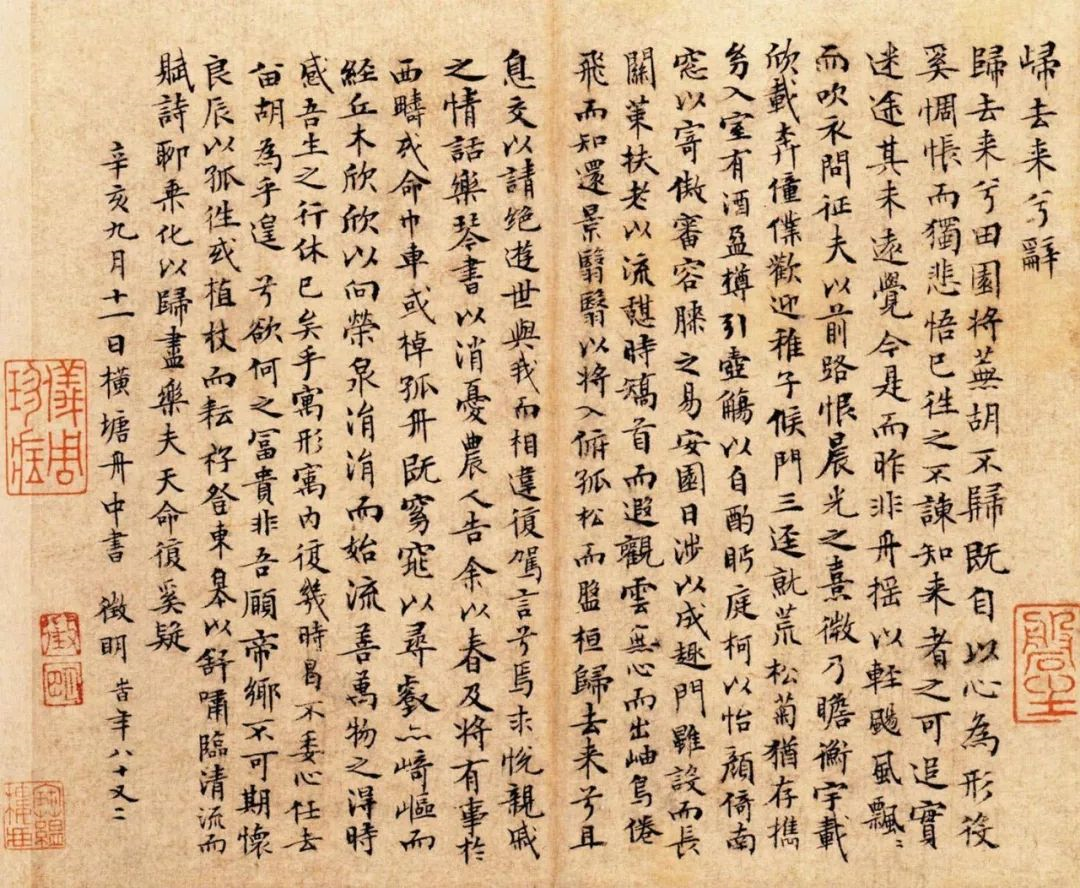 歸去来兮辭
歸去来兮田園将蕪胡不歸既自以心為形役
奚惆悵而獨悲悟已往之不諫知来者之可追實
迷途其未遠覺今是而昨非舟摇以輕颺風飄〻
而吹衣問征夫以前路恨晨光之熹微乃瞻衡宇載
欣載奔僮僕歡迎稚子候門三逕就荒松菊猶存攜
幼入室有酒盈樽引壺觴以自酌眄庭柯以怡顏倚南
窓以寄傲審容膝之易安園日涉以成趣門雖設而長
關策扶老以流憩時矯首而遐觀雲無心而出岫鳥倦
飛而知還景翳翳以将入俯孤松而盤桓歸去来兮且
息交以請绝遊世與我而相違復駕言兮焉求悦親戚
之情話樂琴書以消憂農人告余以春及将有事於
西疇或命巾車或棹孤舟既窈窕以尋壑亦崎嶇而
經丘木欣欣以向榮泉涓涓而始流善萬物之得時
感吾生之行休已矣乎寓形寓内復幾時曷不委心任去
留胡為乎遑兮欲何之冨貴非吾願帝鄉不可期懷
良辰以孤往或植杖而耘耔登東皋以舒嘯臨清流而
賦詩聊乗化以歸盡樂夫天命復奚疑
辛亥九月十一日横塘舟中書 徵明 旹年八十又二
儀周珍藏
徵明